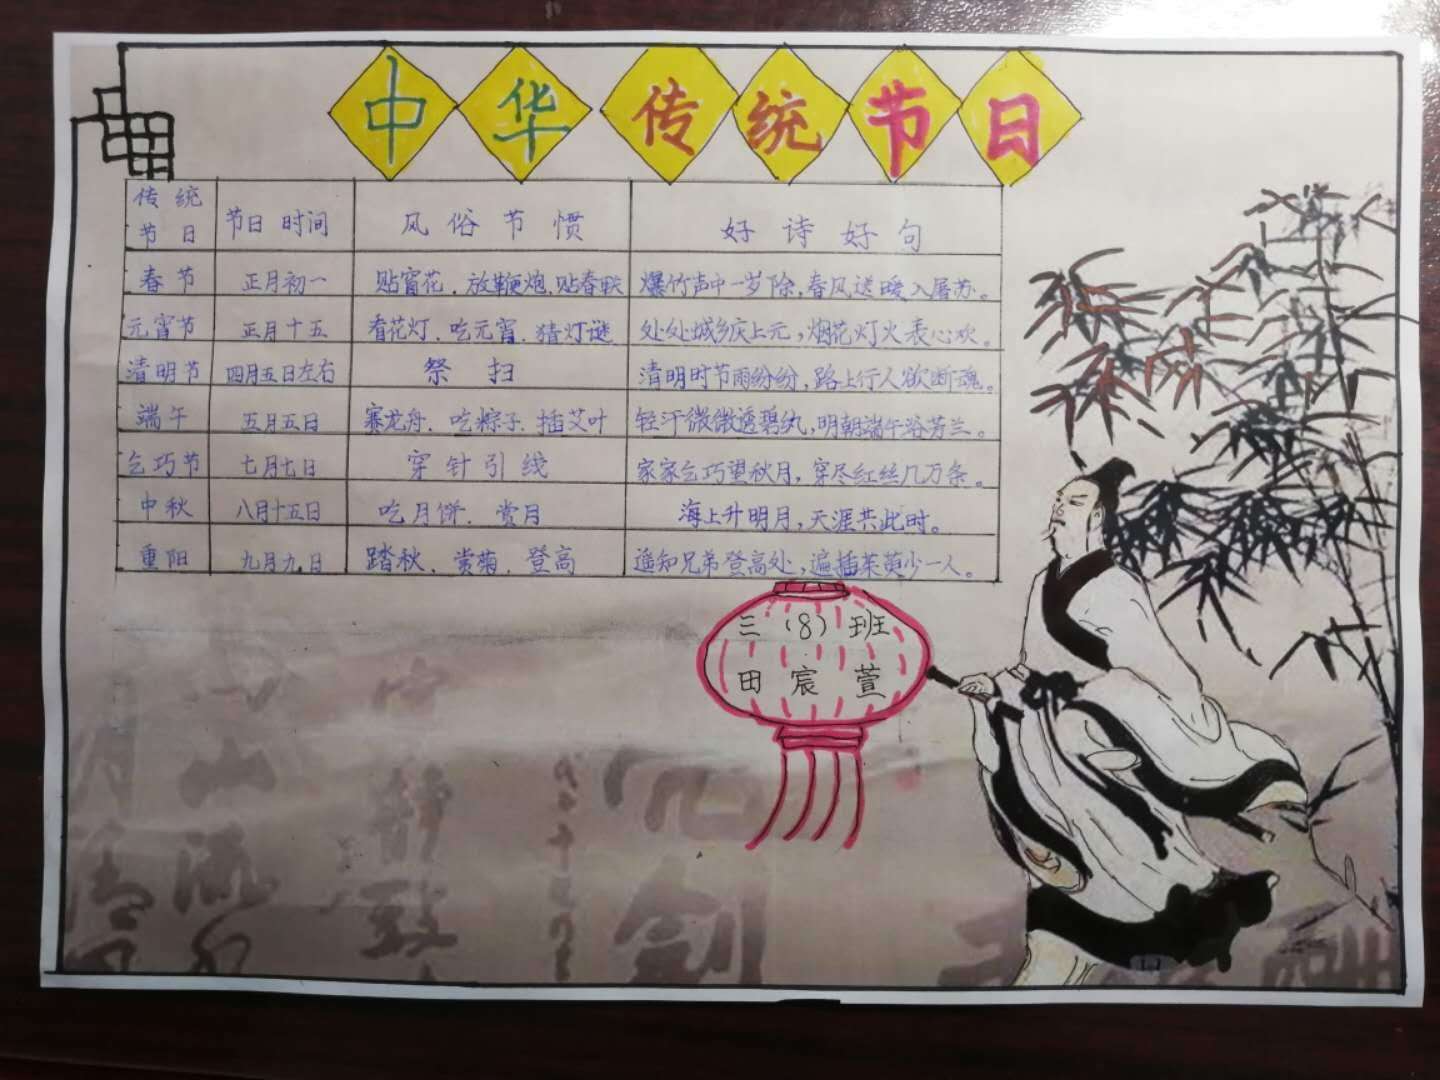 中华传统节日
传统节日 节日时间 风俗节惯 好诗好句
春节 正月初一 贴窗花.放鞭炮.贴春联 爆竹声中一岁除,春风送暖入屠苏。
元宵节 正月十五 看花灯.吃元宵.猜灯谜 处处城乡庆上元,烟花灯火表心欢。
清明节 四月五日左右 祭扫 清明时节雨纷纷,路上行人欲断魂。
端午 五月五日 赛龙舟.吃粽子.插艾叶 轻汗微微透碧纨,明朝端午浴芳兰。
乞巧节 七月七日 穿针引线 家家乞巧望秋月,穿尽红丝几万条。
中秋 八月十五日 吃月饼.赏月 海上升明月,天涯共此时。
重阳 九月九日 踏秋.赏菊.登高 遥知兄弟登高处,遍插茱萸少一人。
三(8)班
田宸萱